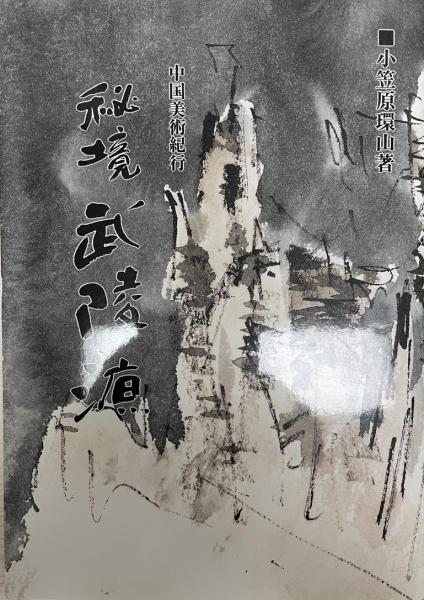 ■小笠原環山著
中国美術紀行
秘境 武陵源